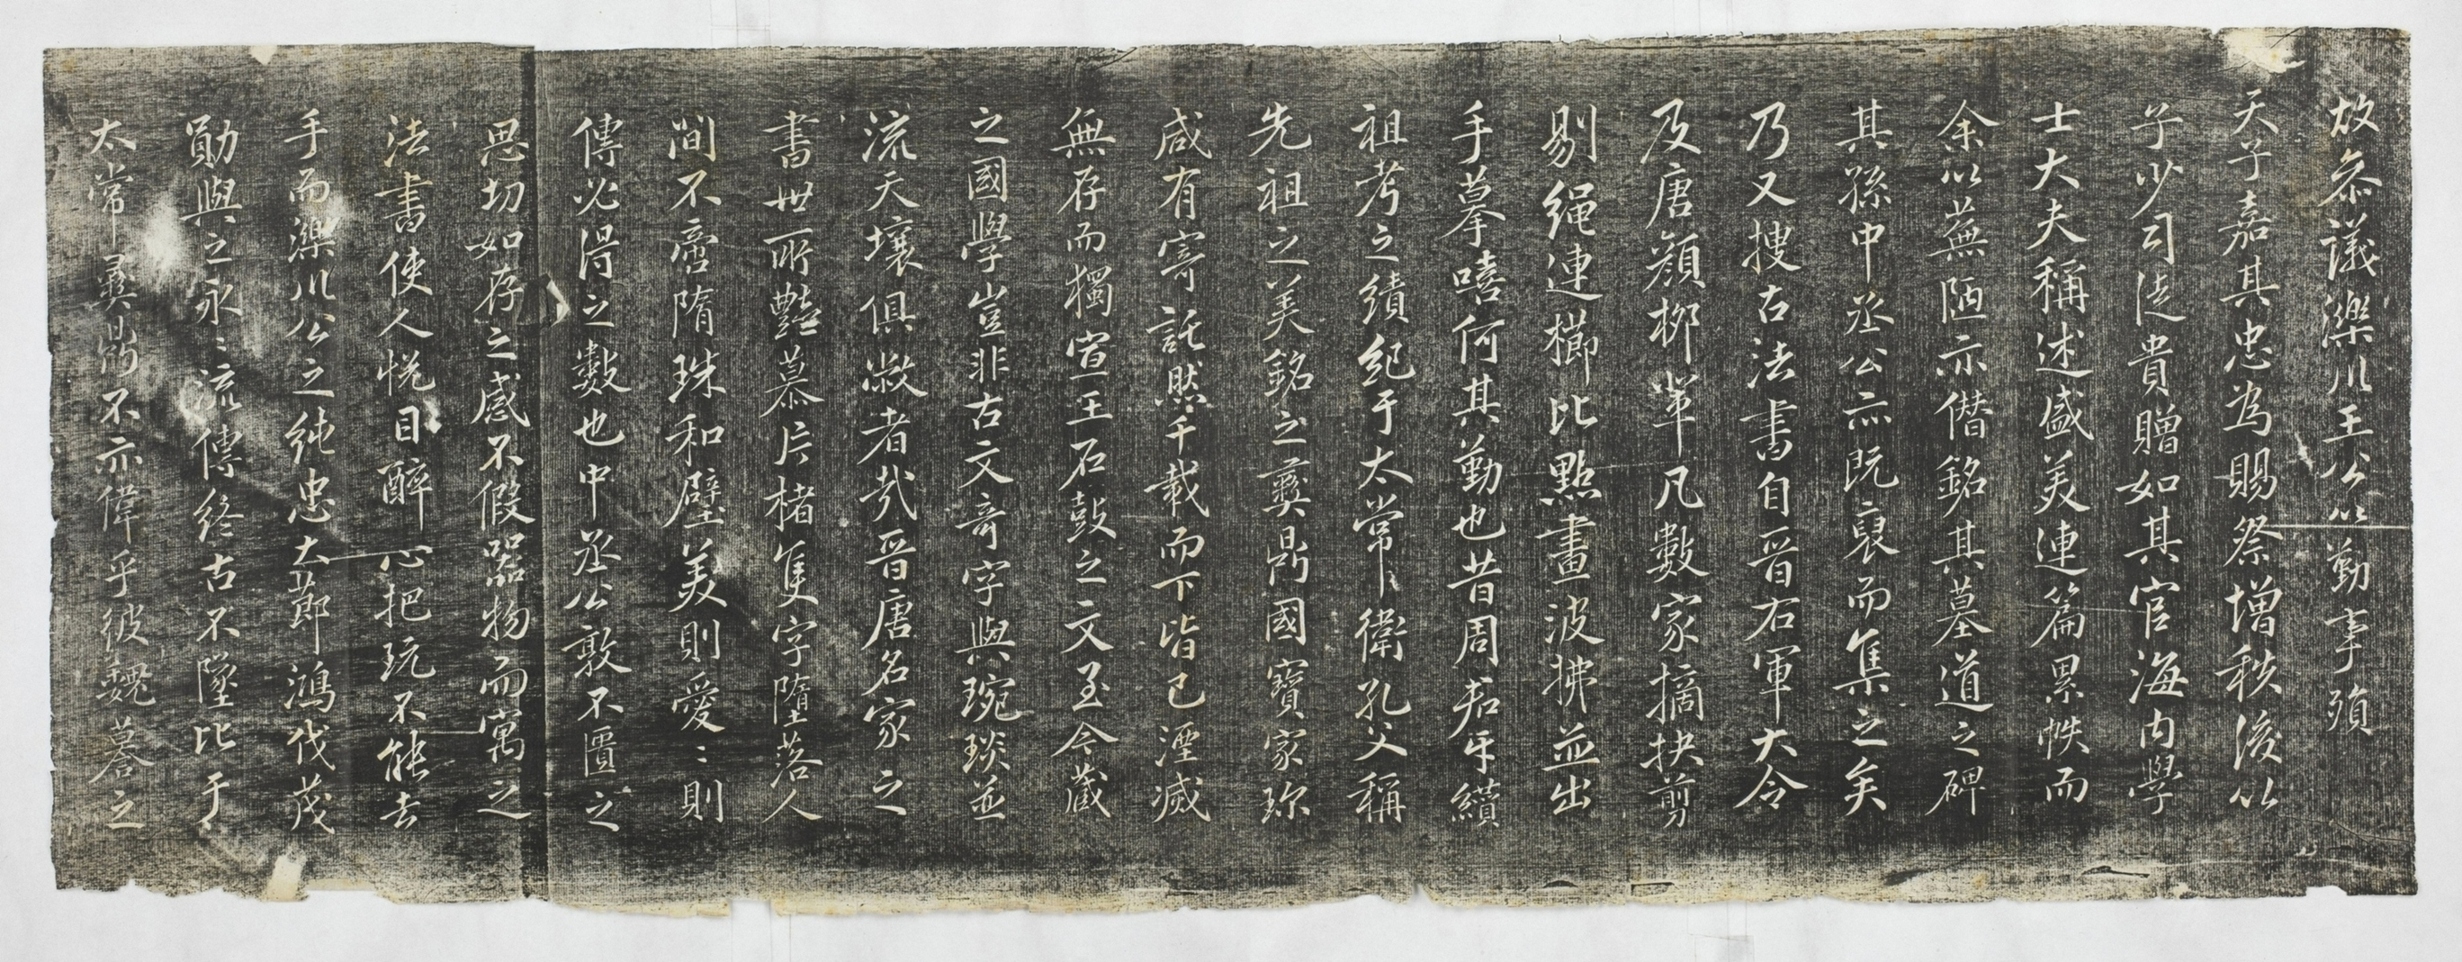 故叅議濼川王公以勤事殞
天子嘉其忠為賜祭增秩後以
子少司徒貴贈如其官海内學
士大夫稱述盛美連篇累帙而
余以蕪陋亦僣銘其墓道之碑
其孫中丞公亦既裒而集之矣
乃又搜古法書自晋右軍大令
及唐顔桺軰凡數家摘抉剪
剔縄連櫛比點畫波拂並出
手摹嘻何其勤也昔周君牙纘
祖考之績紀于太常衛孔父稱
先祖之美銘之彝鼎國寶家珎
咸有寄託然千載而下皆已湮滅
無存而獨宣王石鼓之文至今蔵
之國學豈非古文竒字與琬琰並
流天壤俱敝者㢤晋唐名家之
書世所艷慕片楮隻字墮落人
間不啻隋珠和璧美則愛〻則
傳必得之數也中丞公敦不匱之
思切如存之感不假器物而寓之
法書使人恱目醉心把玩不能去
手而濼川公之純忠大莭鴻伐茂
勛與之永〻流傳終古不墜比于
太常彝鼎不亦偉乎彼魏碁之